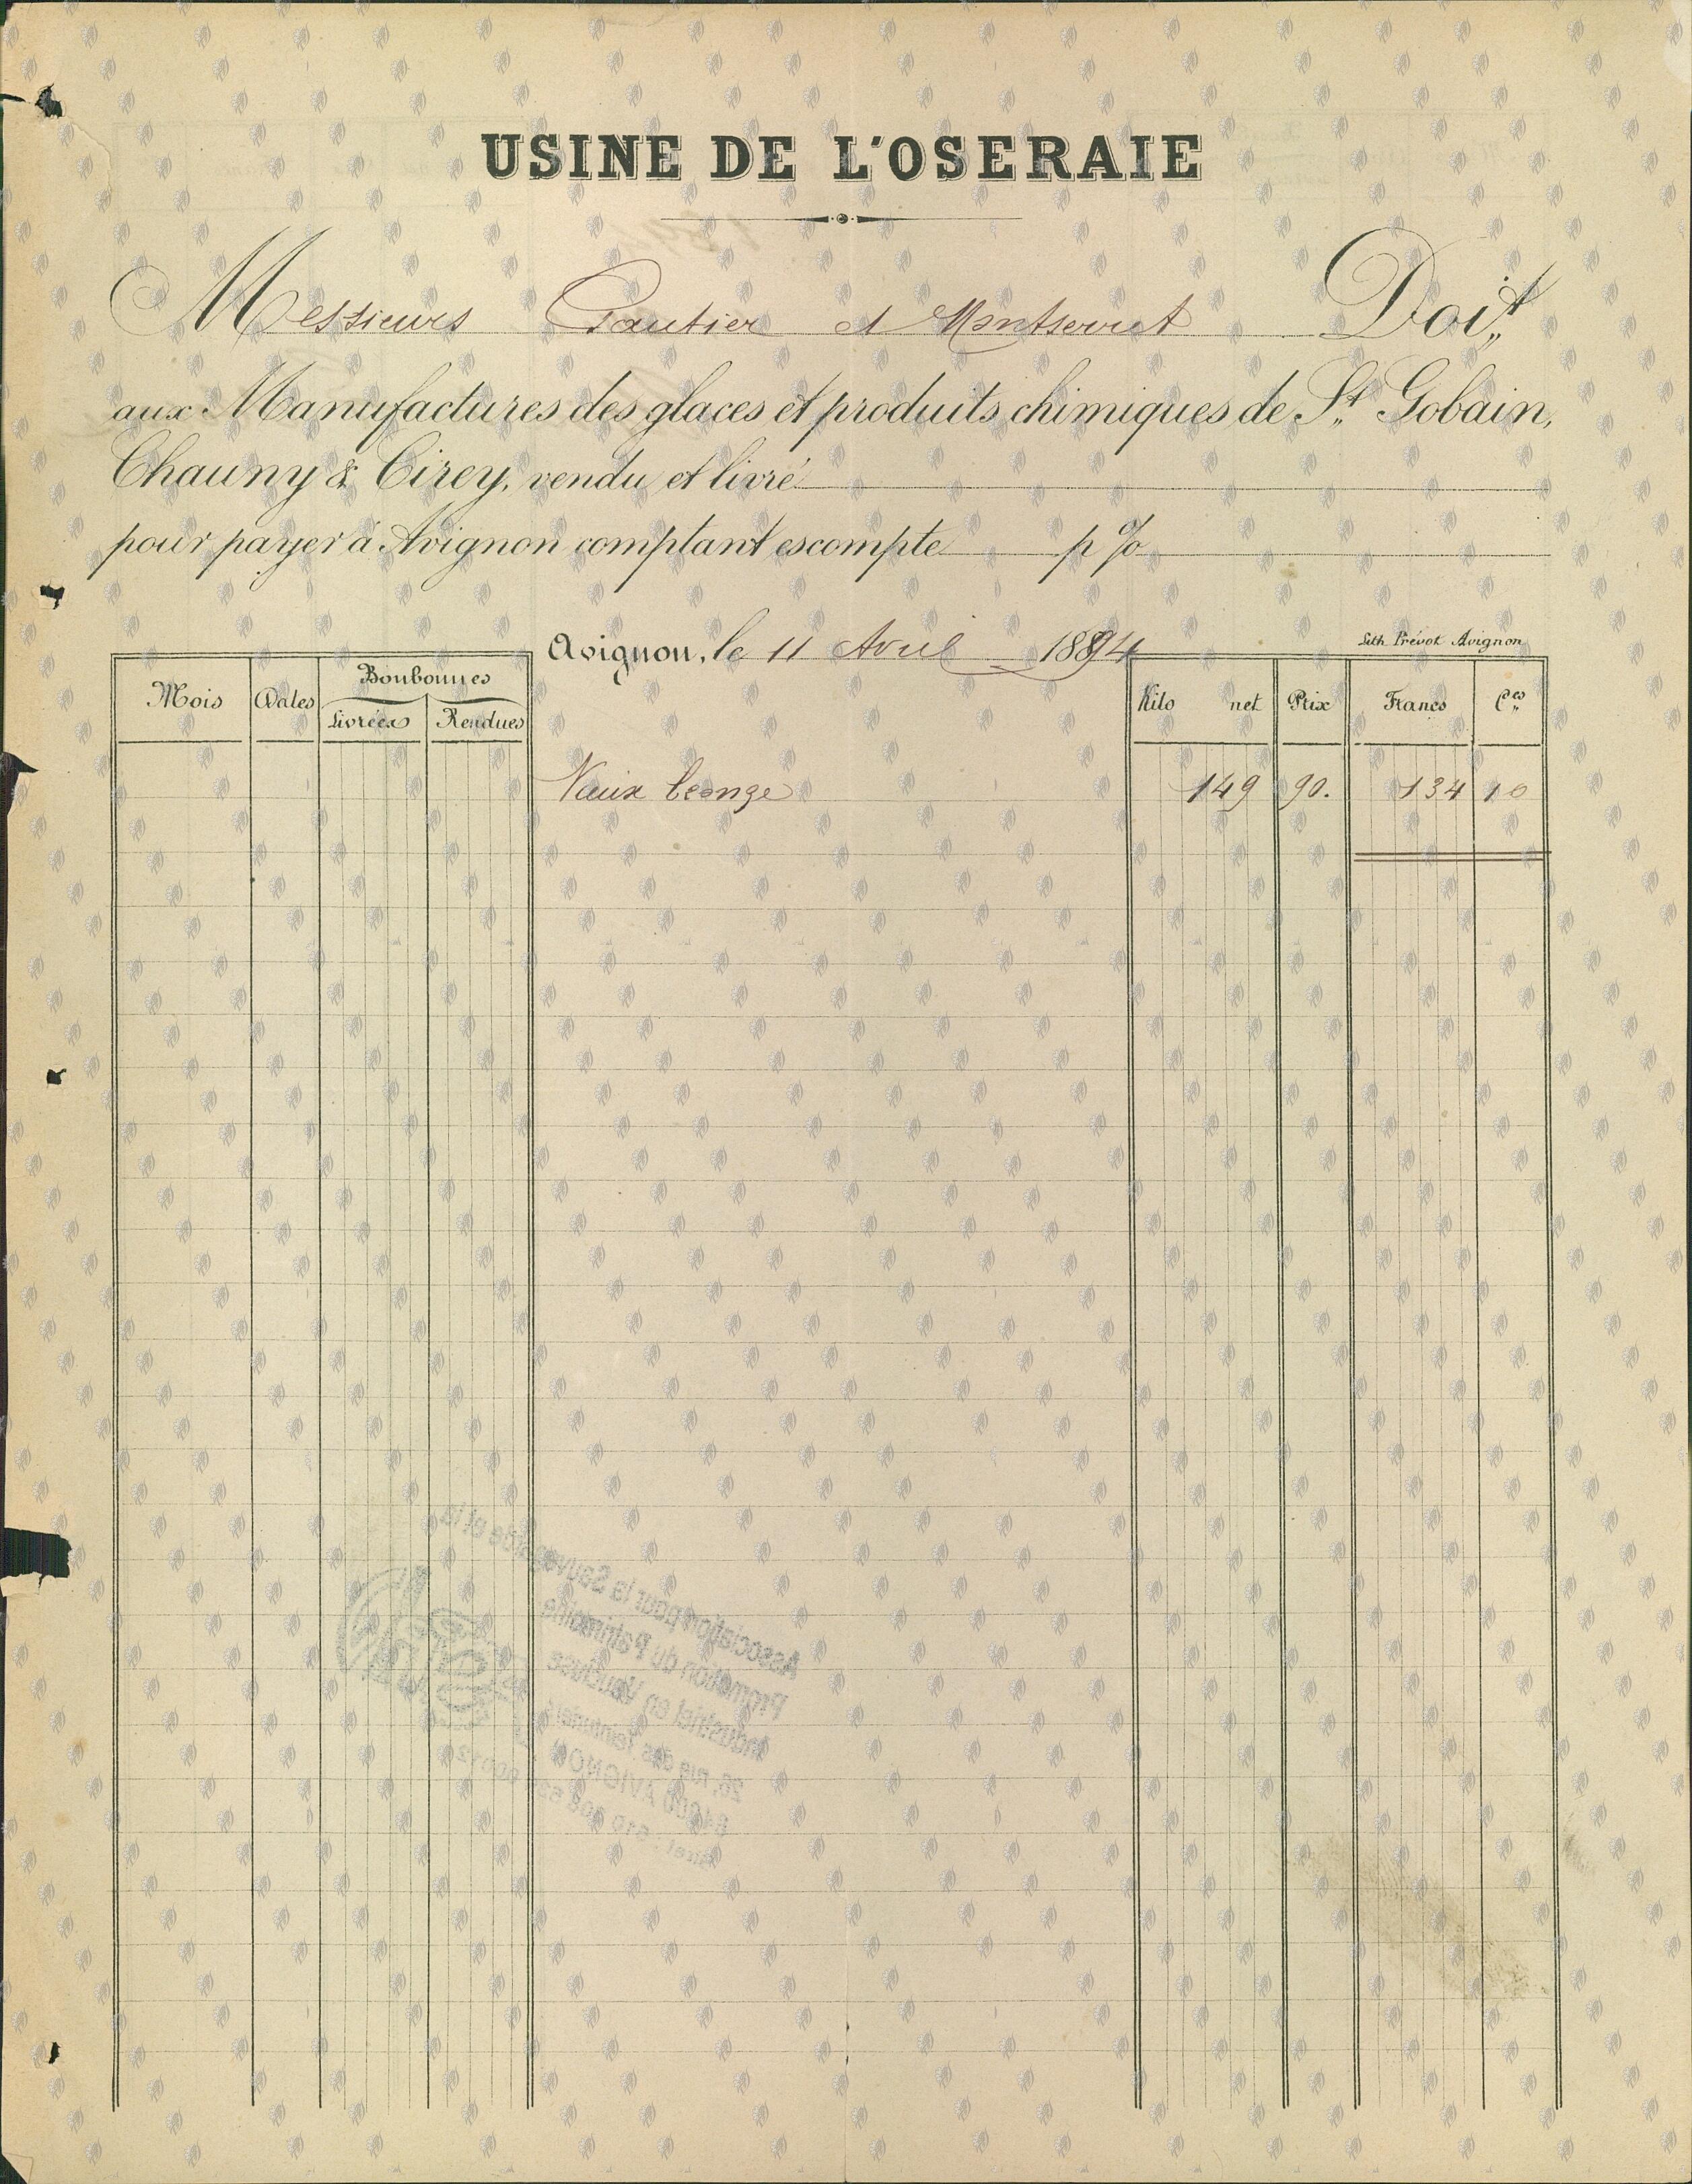 USINE DE L'OSERAIE
Messieurs Gautier et Montserret Doit
aux Manufactures des glaces et produits chimiques de St. Gobain,
Chauny & Cirey, vendu et livré
pour payer à Avignon comptant escompte p%
Avignon, le 11 Avril 1894
Lith. Prévot Avignon
Mois Dates Bonbonnes Kilo net Prix Francs Ces
Livrées Rendues
Vieux bronze 149 90. 134 10
Association pour la Sauvegarde et la
Promotion du Patrimoine
Industriel en Vaucluse
26, rue des Teinturiers
84000 AVIGNON